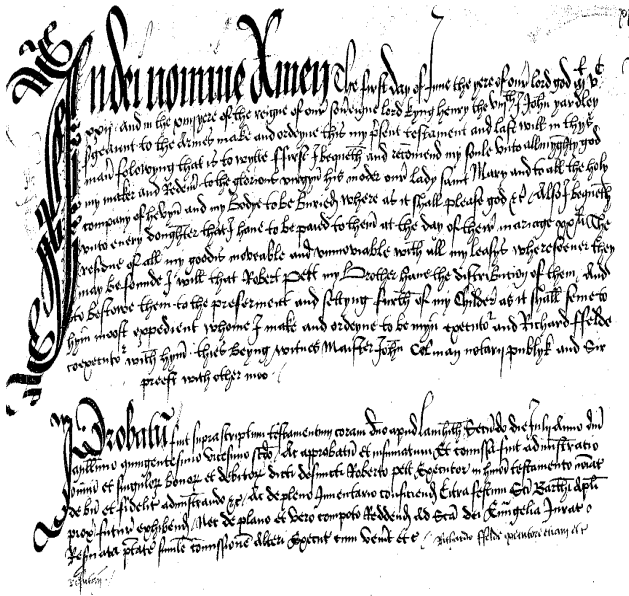 In dei nomine Amen The first day of June the yere of our lord god m v c
xxij and in the xiiij yere of the reigne of our soveigne lord kyng henry the viijth I John yardley
sgeaunt to the Armes make and ordeyne this my psent testament and last will in thys
maner folowyng that is to wytte ffirst I bequeth and recomend my soule unto allmyghty god
my maker and Redemer to the glorious virgyn his moder our lady saint Mary and to all the holy
company of hevyn and my Bodye to be Buried where as it shall please god &c Also I bequeth
unto every doughter that I have to be paid to them at the day of their mariage xx li The
residue of all my goodis moveable and unmoviable with all my leasys wheresoever they
may be founde I will that Robert Pett my Brother have the distribution of them And
to bestowe them to the preferment and settyng furth of my Childer as it shall seme to
hym moost expedient whome I make and ordeyne to be myn executor and Richard ffelde
coexecutor with hym thies beyng witnes Maister John Colman notary publyk and Sir
preest with other moo
Probatum fuit suprascriptum testamentum coram dno apud Lamhith Secundo die Julij Anno dni
millimo quingentesimo vicesimo scdo Ac approbatum et insinuatum Et comissa fuit administratio
omnium et singulor bonor et debitor dicti defuncti Roberto pett Executor in hmoi testamento noiat
de bn et fideliter administrando &c Ac de pleno Inventario conficiend Citra festum Sci Barthi Apli
prox futur exhibend Nec de plano et vero compoto Reddend Ad Sca dei Evangelia Jurat
Reservata ptate simile comissionem alteri Executor cum venit etc Richardo ffelde